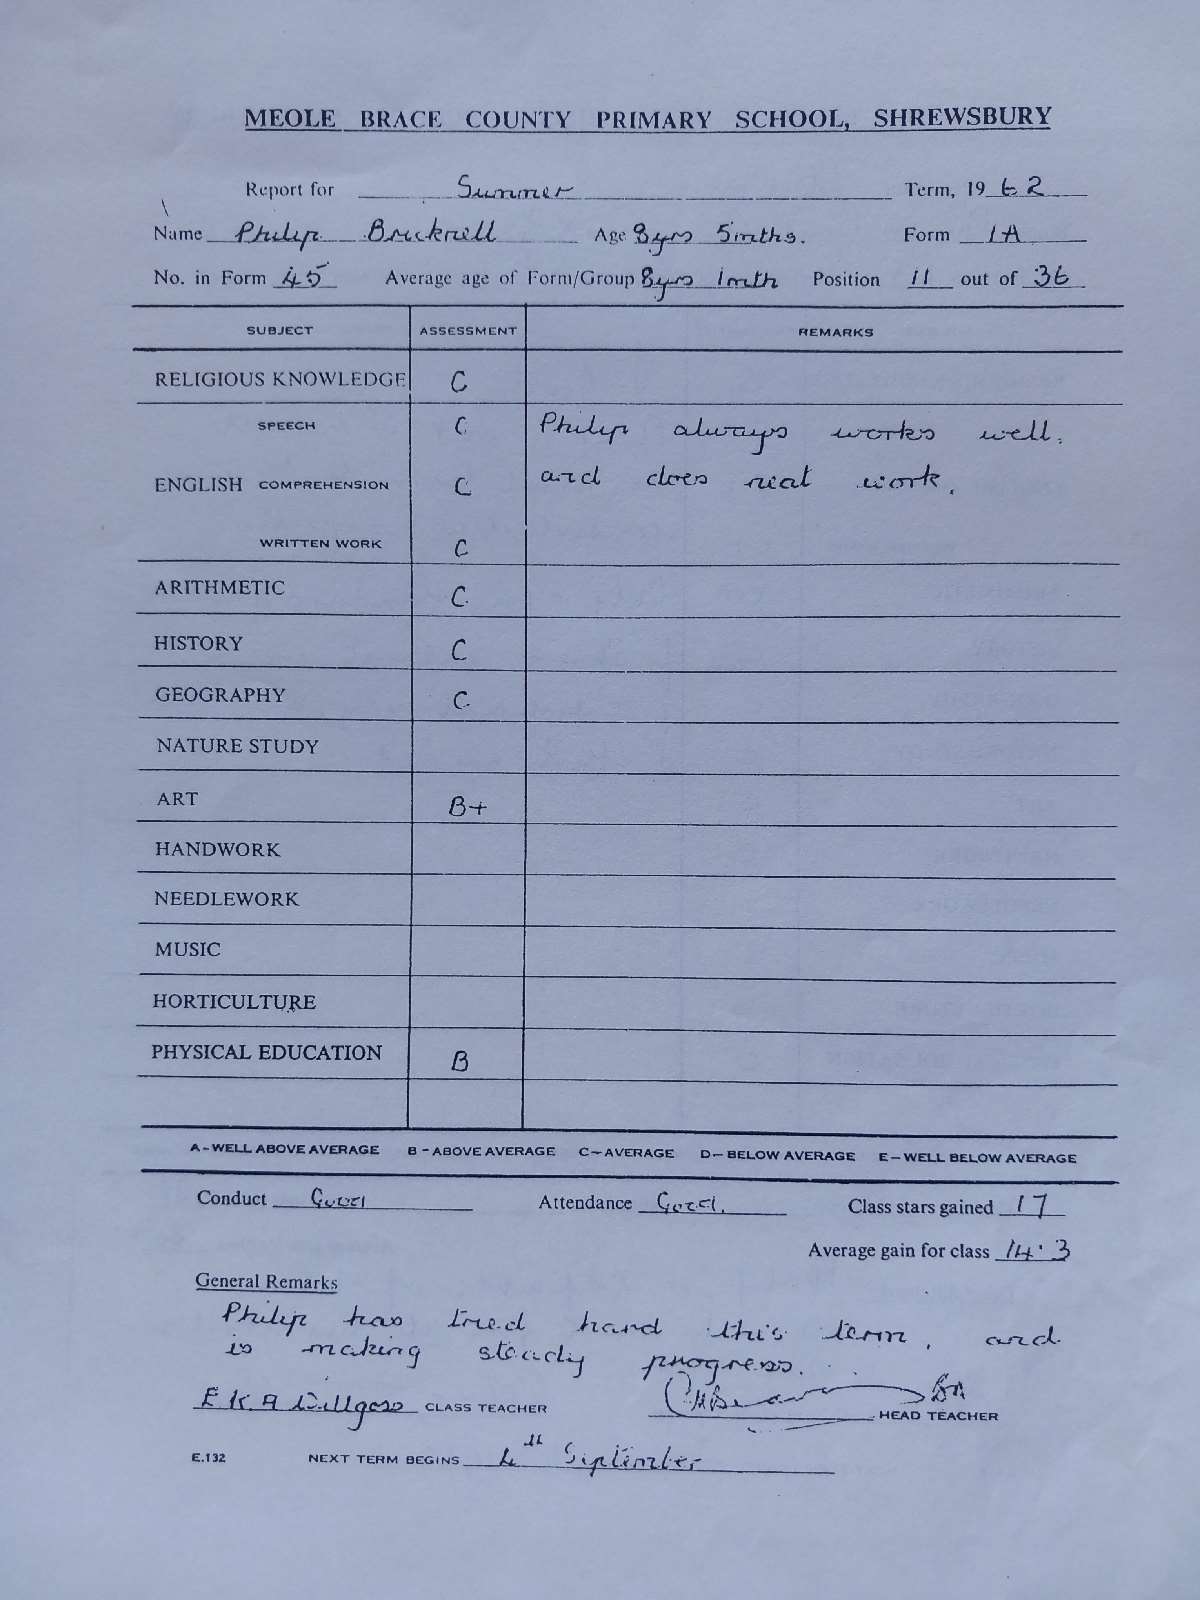 MEOLE BRACE COUNTY PRIMARY SCHOOL, SHREWSBURY
Report for Summer Term, 1962
Name Philip Bricknell Age 8yrs 5mths. Form 1A
No. in Form 45 Average age of Form/Group 8yrs 1mth Position 11 out of 36
SUBJECT ASSESSMENT REMARKS
RELIGIOUS KNOWLEDGE C
SPEECH C Philip always works well,
ENGLISH COMPREHENSION C and does neat work.
WRITTEN WORK C
ARITHMETIC C
HISTORY C
GEOGRAPHY C
NATURE STUDY
ART B+
HANDWORK
NEEDLEWORK
MUSIC
HORTICULTURE
PHYSICAL EDUCATION B
A-WELL ABOVE AVERAGE B-ABOVE AVERAGE C-AVERAGE D-BELOW AVERAGE E-WELL BELOW AVERAGE
Conduct Good Attendance Good. Class stars gained 17
Average gain for class 14.3
General Remarks
Philip has tried hard this term, and
is making steady progress.
E K A CLASS TEACHER
HEAD TEACHER
E.132 NEXT TERM BEGINS 4th September